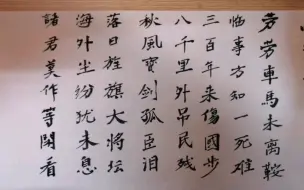 劳劳車馬未離鞍
临事方知一死難
三百年来傷國步
八千里外吊民残
秋風寳劍孤臣泪
落日旌旗大将坛
海外尘纷犹未息
諸君莫作等閑看